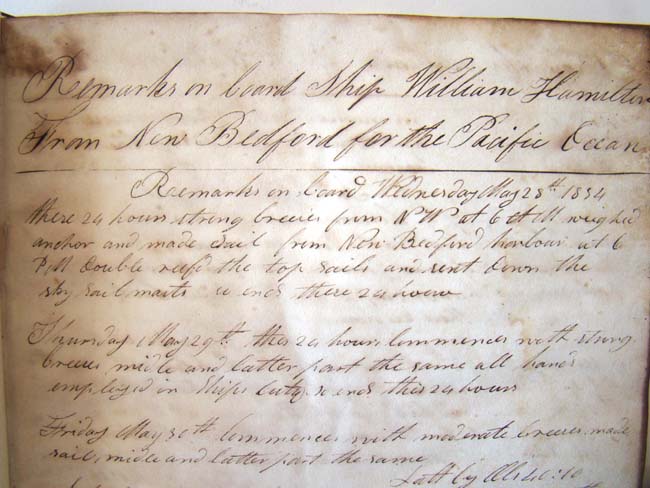 Remarks on board Ship William Hamilton
From New Bedford for the Pacific Ocean
Remarks on board Wednesday May 28th 1834
these 24 hours strong breezes from NW at 6 AM weighed
anchor and made sail from New Bedford harbour at 6
PM double reefd the top sails and sent down the
sky sail masts so ends these 24 hours
Thursday May 29th this 24 hours Commences with strong
breezes midle and latter part the same all hands
employed in Ships duty so ends this 24 hours
Friday May 30th Commences with moderate breezes made
sail, midle and latter part the same
Latt by Obs 40:10